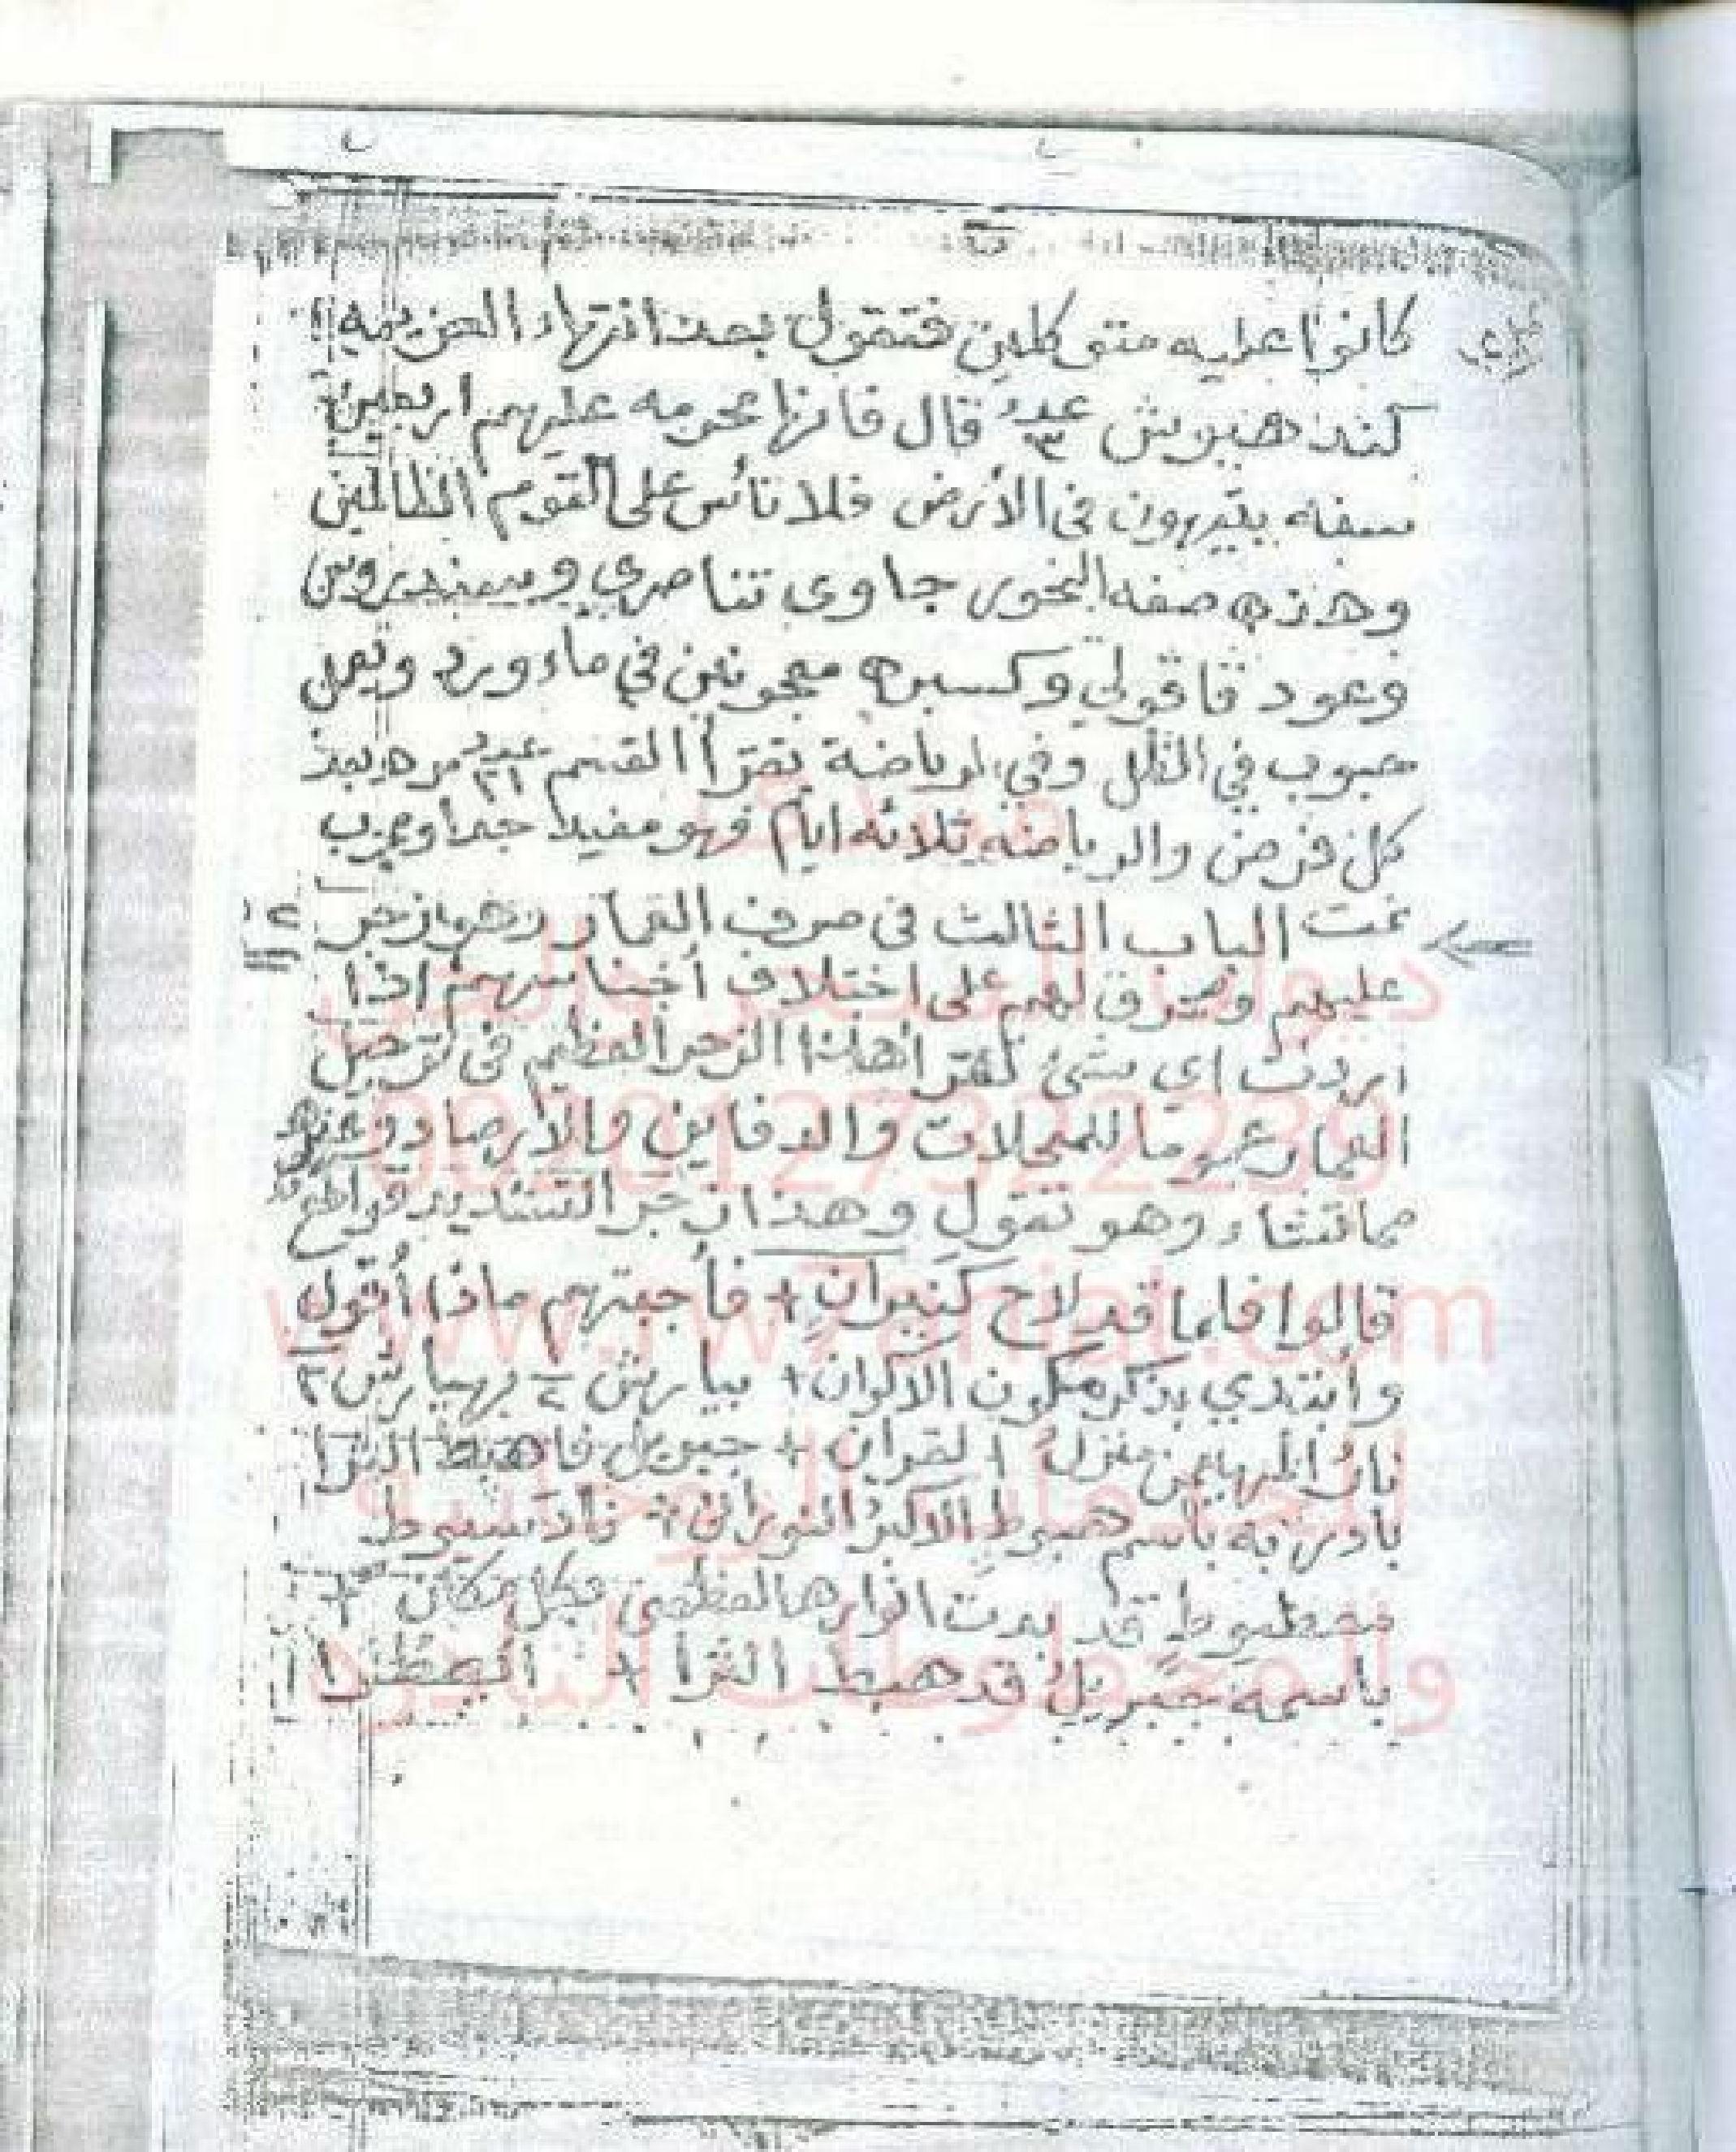 كانوا عليه متوكلين فتقول بعد انتهاء العزيمه
كندهبوش عدد ٣ قال فانها محرمه عليهم اربعين
سنه يتيهون فى الأرض فلا تأس على القوم الظالمين
وهذه صفه البخور جاوى تناصري وسندروس
وعود قاقولي وكسبره معجونين في ماء ورد وتعمل
حبوب في الظل وفي الرياضة تقرأ القسم عدد ٢١ مره بعد
كل فرض والرياضه ثلاثه ايام فهو مفيدا جدا ومجرب
تمت الباب الثالث فى صرف العمار وهو زجر
عليهم وصرف لهم على اختلاف أجناسهم اذا
اردت اي شئ تقرأ هذا الزجر العظيم فى ترحيل
العمار عموما للمحلات والدفاين والأرصاد وغيره
مما تشاء وهو تقول وهذا زجر الشديد
قالوا فلما قد لاح كنيران + فأجبتهم ماذا أقول
وأبتدي بذكره مكون الاكوان + بيارش ٢ بهيارش ٢
نار المهيمن منزل القرآن + جبريل فاهبط الثرا
بادر به باسم هبوط الاكبر النوراني +
قد بدت انوارها العظمى بكل مكان +
باسمه جبريل قد هبط الثرا +
www.rw7aniat.com